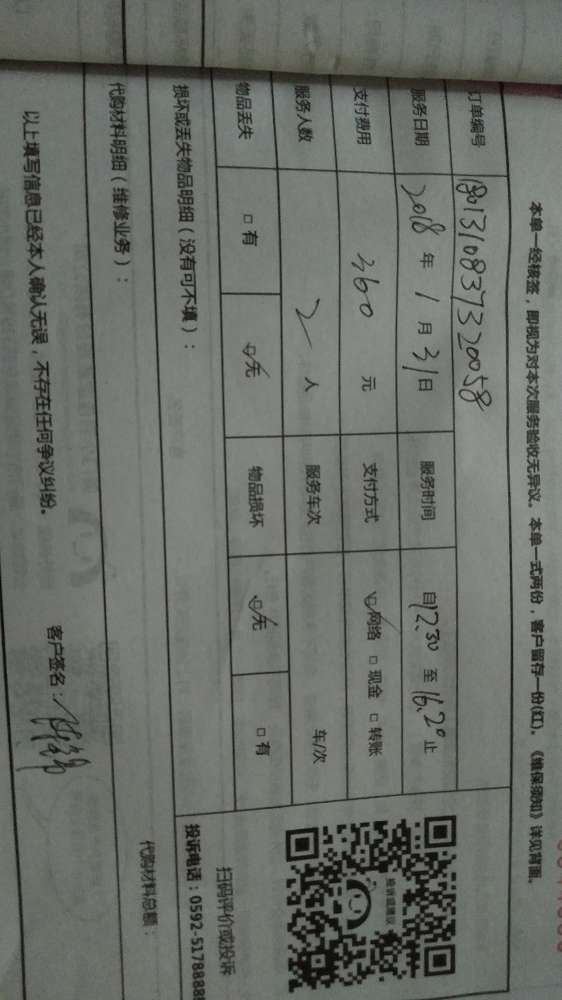 本单一经核签，即视为对本次服务验收无异议。本单一式两份，客户留存一份(红)。《维保须知》详见背面。
订单编号 1801310837320058
服务日期 2018 年 1 月 31 日 服务时间 自 12.30 至 16.20 止
支付费用 360 元 支付方式 ☑网络 □现金 □转账
服务人数 2 人 服务车次 车/次
物品丢失 □有 ☑无 物品损坏 ☑无 □有
损坏或丢失物品明细（没有可不填）：
代购材料明细（维修业务）：
代购材料总额：
以上填写信息已经本人确认无误，不存在任何争议纠纷。
客户签名：
投诉或建议
扫码评价或投诉
投诉电话：0592-5178888